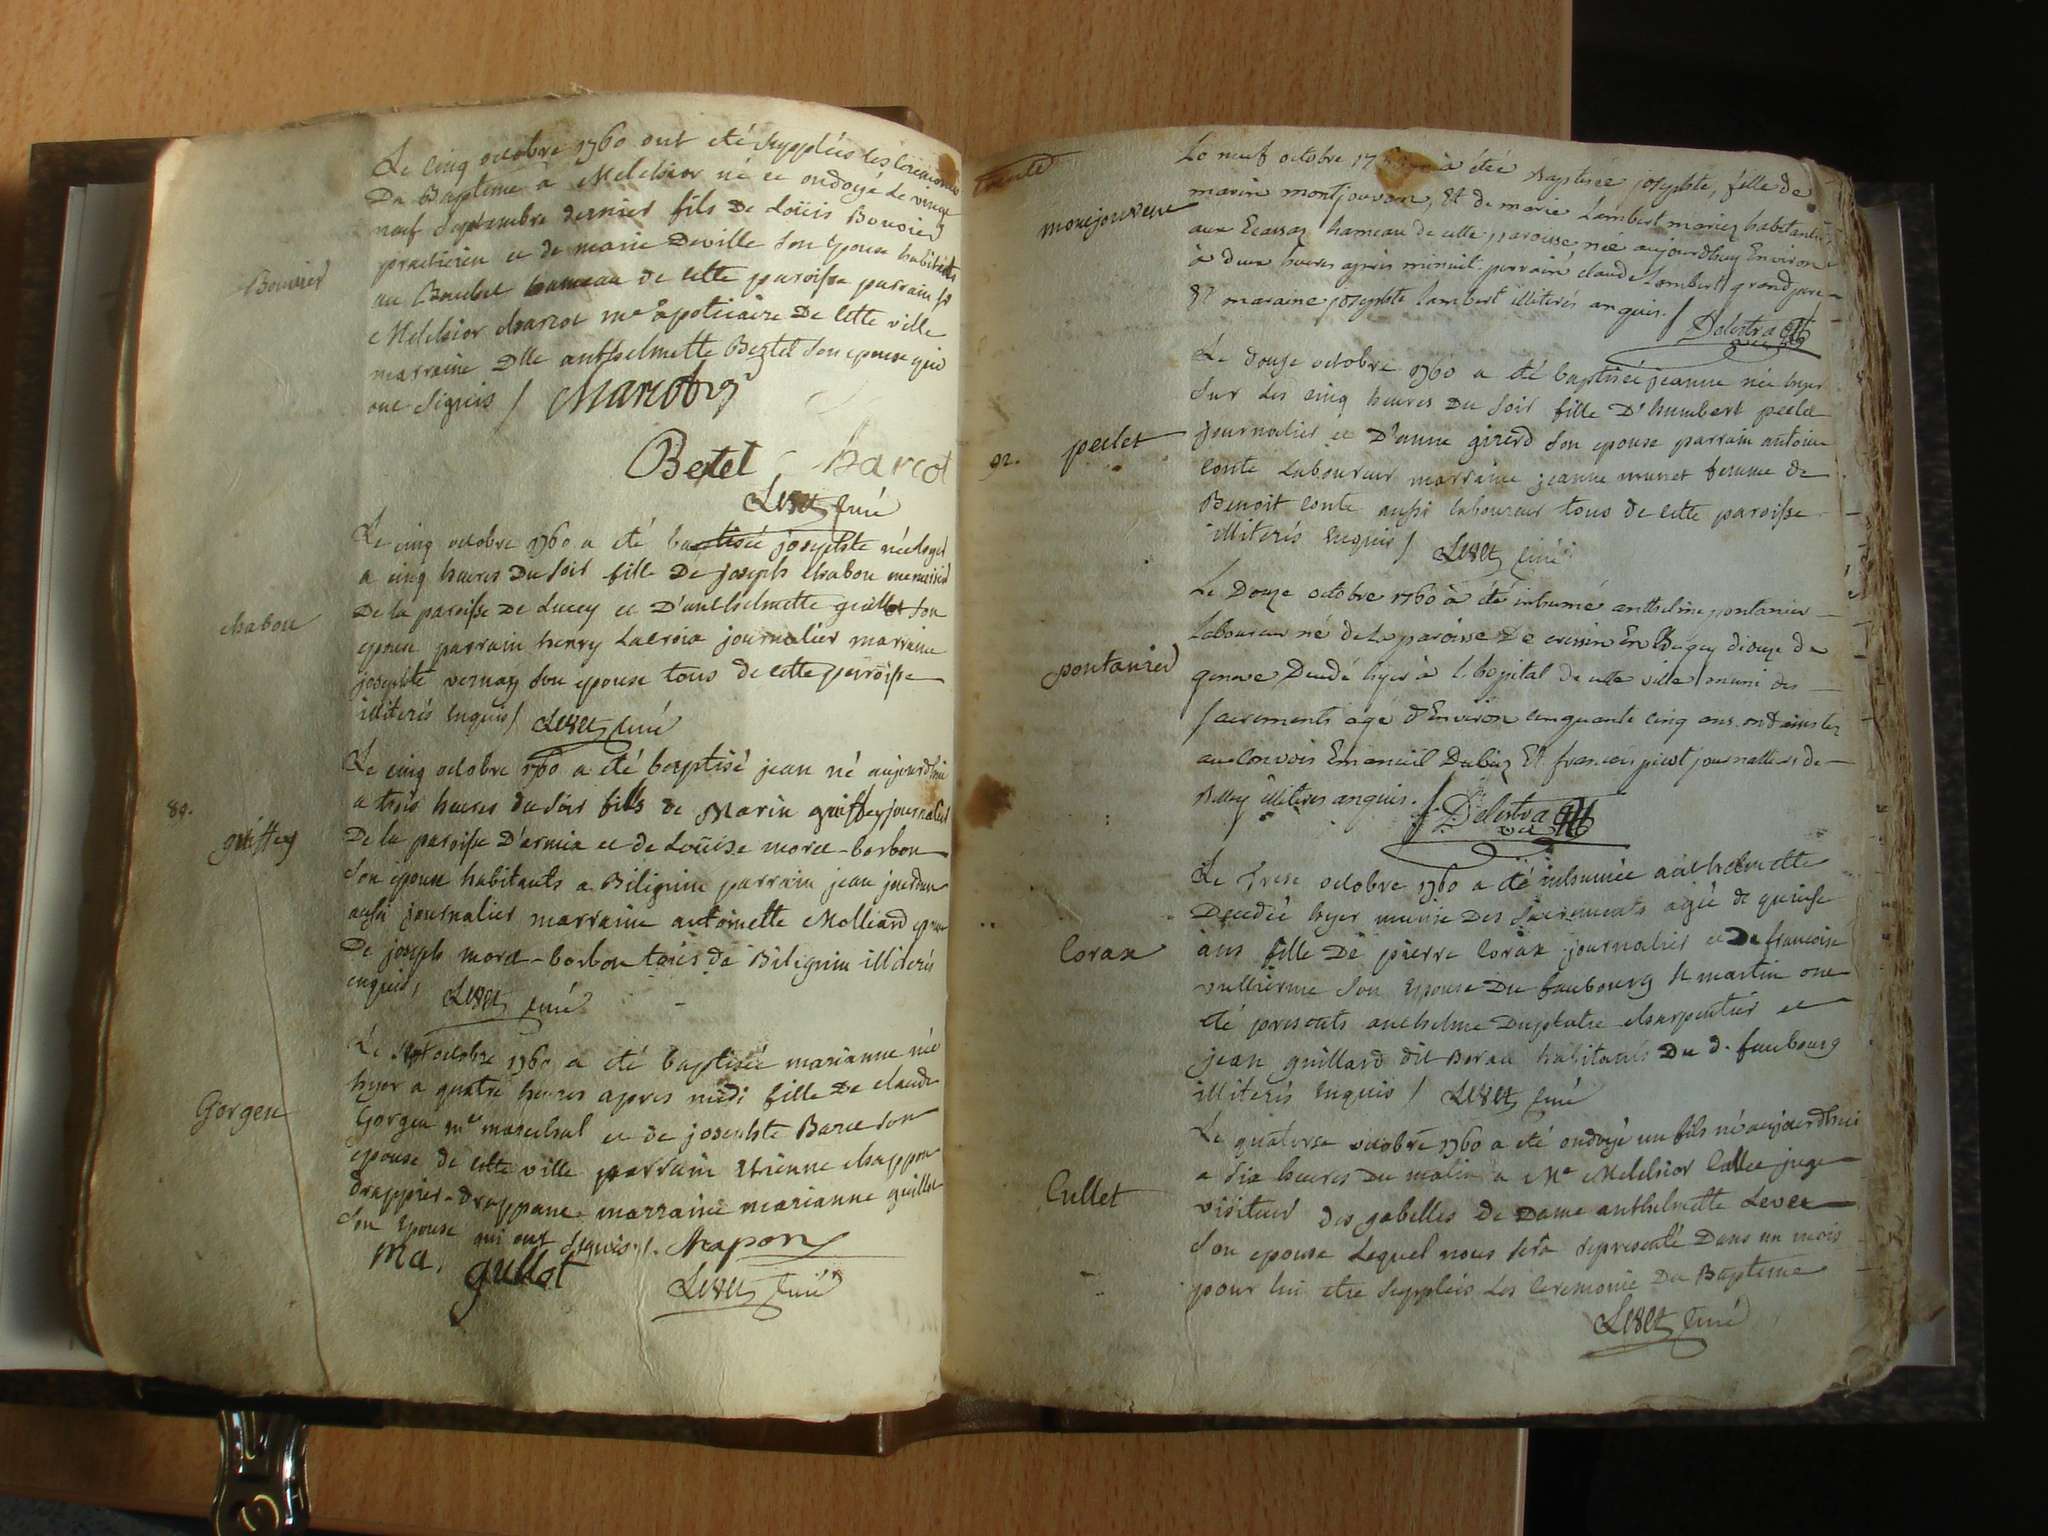 Le cinq octobre 1760 ont eté Suppléés les Ceremonies
Du Bapteme a Melchior né et ondoyé le vingt
neuf Septembre dernier fils de Loüis Bouvier
Bouvier
praticien et de marie Deville Son Epouse habitants
au hameau de cette paroisse parrain Sr
Melchior charcot me apoticaire De cette ville
marraine Dlle anthelmette Beztel Son epouse qui
ont Signés / Charcot
Bestel Charcot
Curé
Le cinq octobre 1760 a eté baptisée josephte née
a cinq heures Du Soir fille De joseph chabou menuisier
chabou
De la paroisse De Lucey et D'anthelmette guillot Son
epouse parrain henry Lacroix journalier marraine
josephte vernay Son epouse tous de cette paroisse
illiterés enquis / Curé
Le cinq octobre 1760 a eté baptisé jean né aujourd'hui
89.
a trois heures du Soir fils de Marin guiffey journalier
guiffey
De la paroisse D'armix et de Loüise morel-borbon
Son epouse habitants a Bilignin parrain jean jourdan
aussi journalier marraine antoinette Molliard epouse
De joseph morel-borbon tous de Bilignin illiterés
enquis, Curé
Le octobre 1760 a eté baptisée marianne née
hyer a quatre heures apres midi fille De claude
Gorgeu
Gorgeu me marechal et de josephte Baret Son
epouse de cette ville parrain Etienne chappon
drappier-drappant marraine marianne guillot
Son Epouse qui ont Signés /. Chapon
ma. gullot
Curé
Le neuf octobre à étée Baptisée josephte, fille de
montjouvent
marin montjouvent, Et de marie Lambert mariez habitants
aux Ecassaz hameau de cette paroisse née aujourdhuy Environ
à deux heures après minuit. parrain claude Lambert grand pere
Et maraine josephte Lambert illiterés anquis. / Delestra
vic
Le douze octobre 1760 a eté baptisée jeanne née hyer
Sur les cinq heures Du Soir fille D'humbert peclet
92. peclet
journalier et D'anne girerd Son epouse parrain antoine
conte Laboureur marraine jeanne munet femme de
Benoit conte aussi laboureur tous de cette paroisse
illiterés enquis / Curé
Le Douze octobre 1760 à été inhumé anthelme pontanier
Laboureur né de La paroisse De cressin En Bugey dioceze de
pontanier
geneve Decedé hyer à l'hopital de cette ville muni des
sacrements agé d'Environ cinquante cinq ans. ont assistez
au Convois Emanuel Dubuz Et francois picot journalliers de
Belley illiteres anquis. / Delestra
vic
Le treze octobre 1760 a eté inhumée anthelmette
Decedée hyer munie Des Sacrements agée de quinze
Corax
ans fille De pierre Corax journalier et De francoise
vullierme Son epouse Du faubourg St martin ont
eté presents anthelme Duplatre charpentier et
jean guillard dit Borau habitants Du d. faubourg
illiterés enquis / Curé
Le quatorse octobre 1760 a eté ondoyé un fils né aujourdhui
a dix heures Du matin a Me Melchior Cullet juge
Cullet
visiteur des gabelles de Dame anthelmette Levet
Son epouse Lequel nous Sera representé Dans un mois
pour lui etre Suppléés Les Ceremonie Du Bapteme
Curé